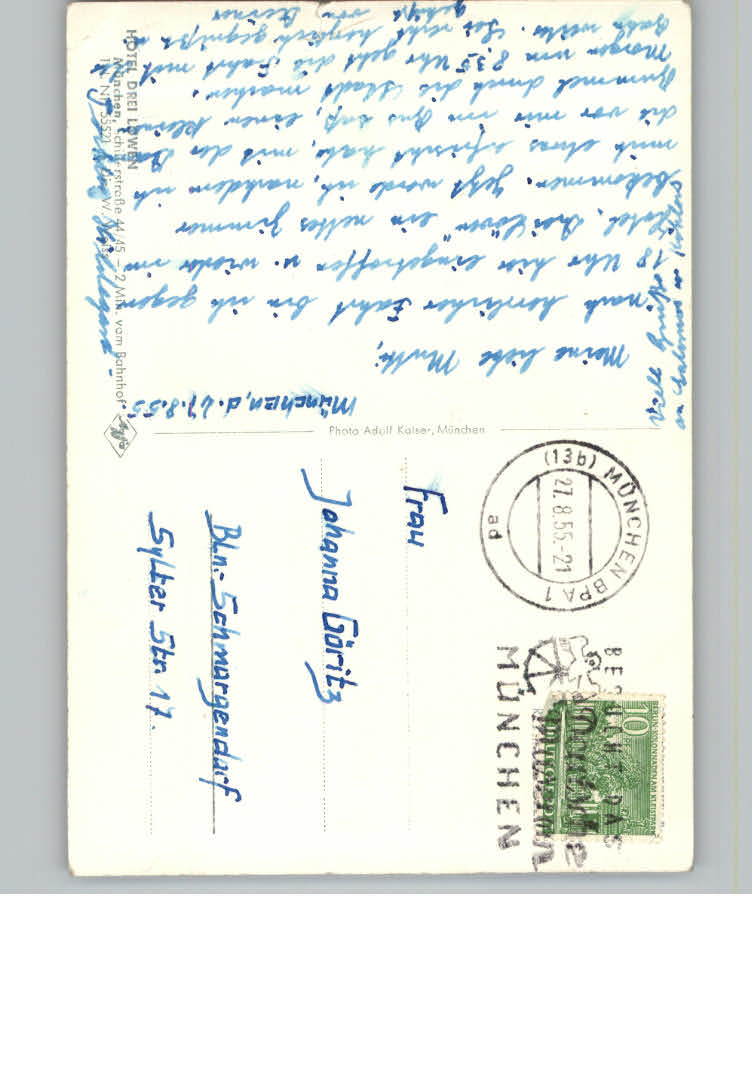 München, d. 27.8.55.
Meine liebe Mutti,
nach herrlicher Fahrt bin ich gegen
18 Uhr hier eingetroffen u. wieder im
Hotel „Drei Löwen" ein nettes Zimmer
bekommen. Jetzt werde ich, nachdem ich
mich etwas erfrischt habe, mit der
die vor mir im Bus saß, einen kleinen
Bummel durch die Stadt machen.
Morgen um 8.35 Uhr geht die Fahrt mit
Bahn weiter. Sei recht herzlich gegrüßt u.
geküßt von Deiner
Viele Grüße
HOTEL DREI LÖWEN
München, Schillerstraße 44/45 – 2 Min. vom Bahnhof
Photo Adolf Kaiser, München
Frau
Johanna Göritz
Bln.-Schmargendorf
Sylter Str. 17.
(13b) MÜNCHEN BPA 1
27.8.55.-21
ad
BESUCHT DAS
MÜNCHEN
10